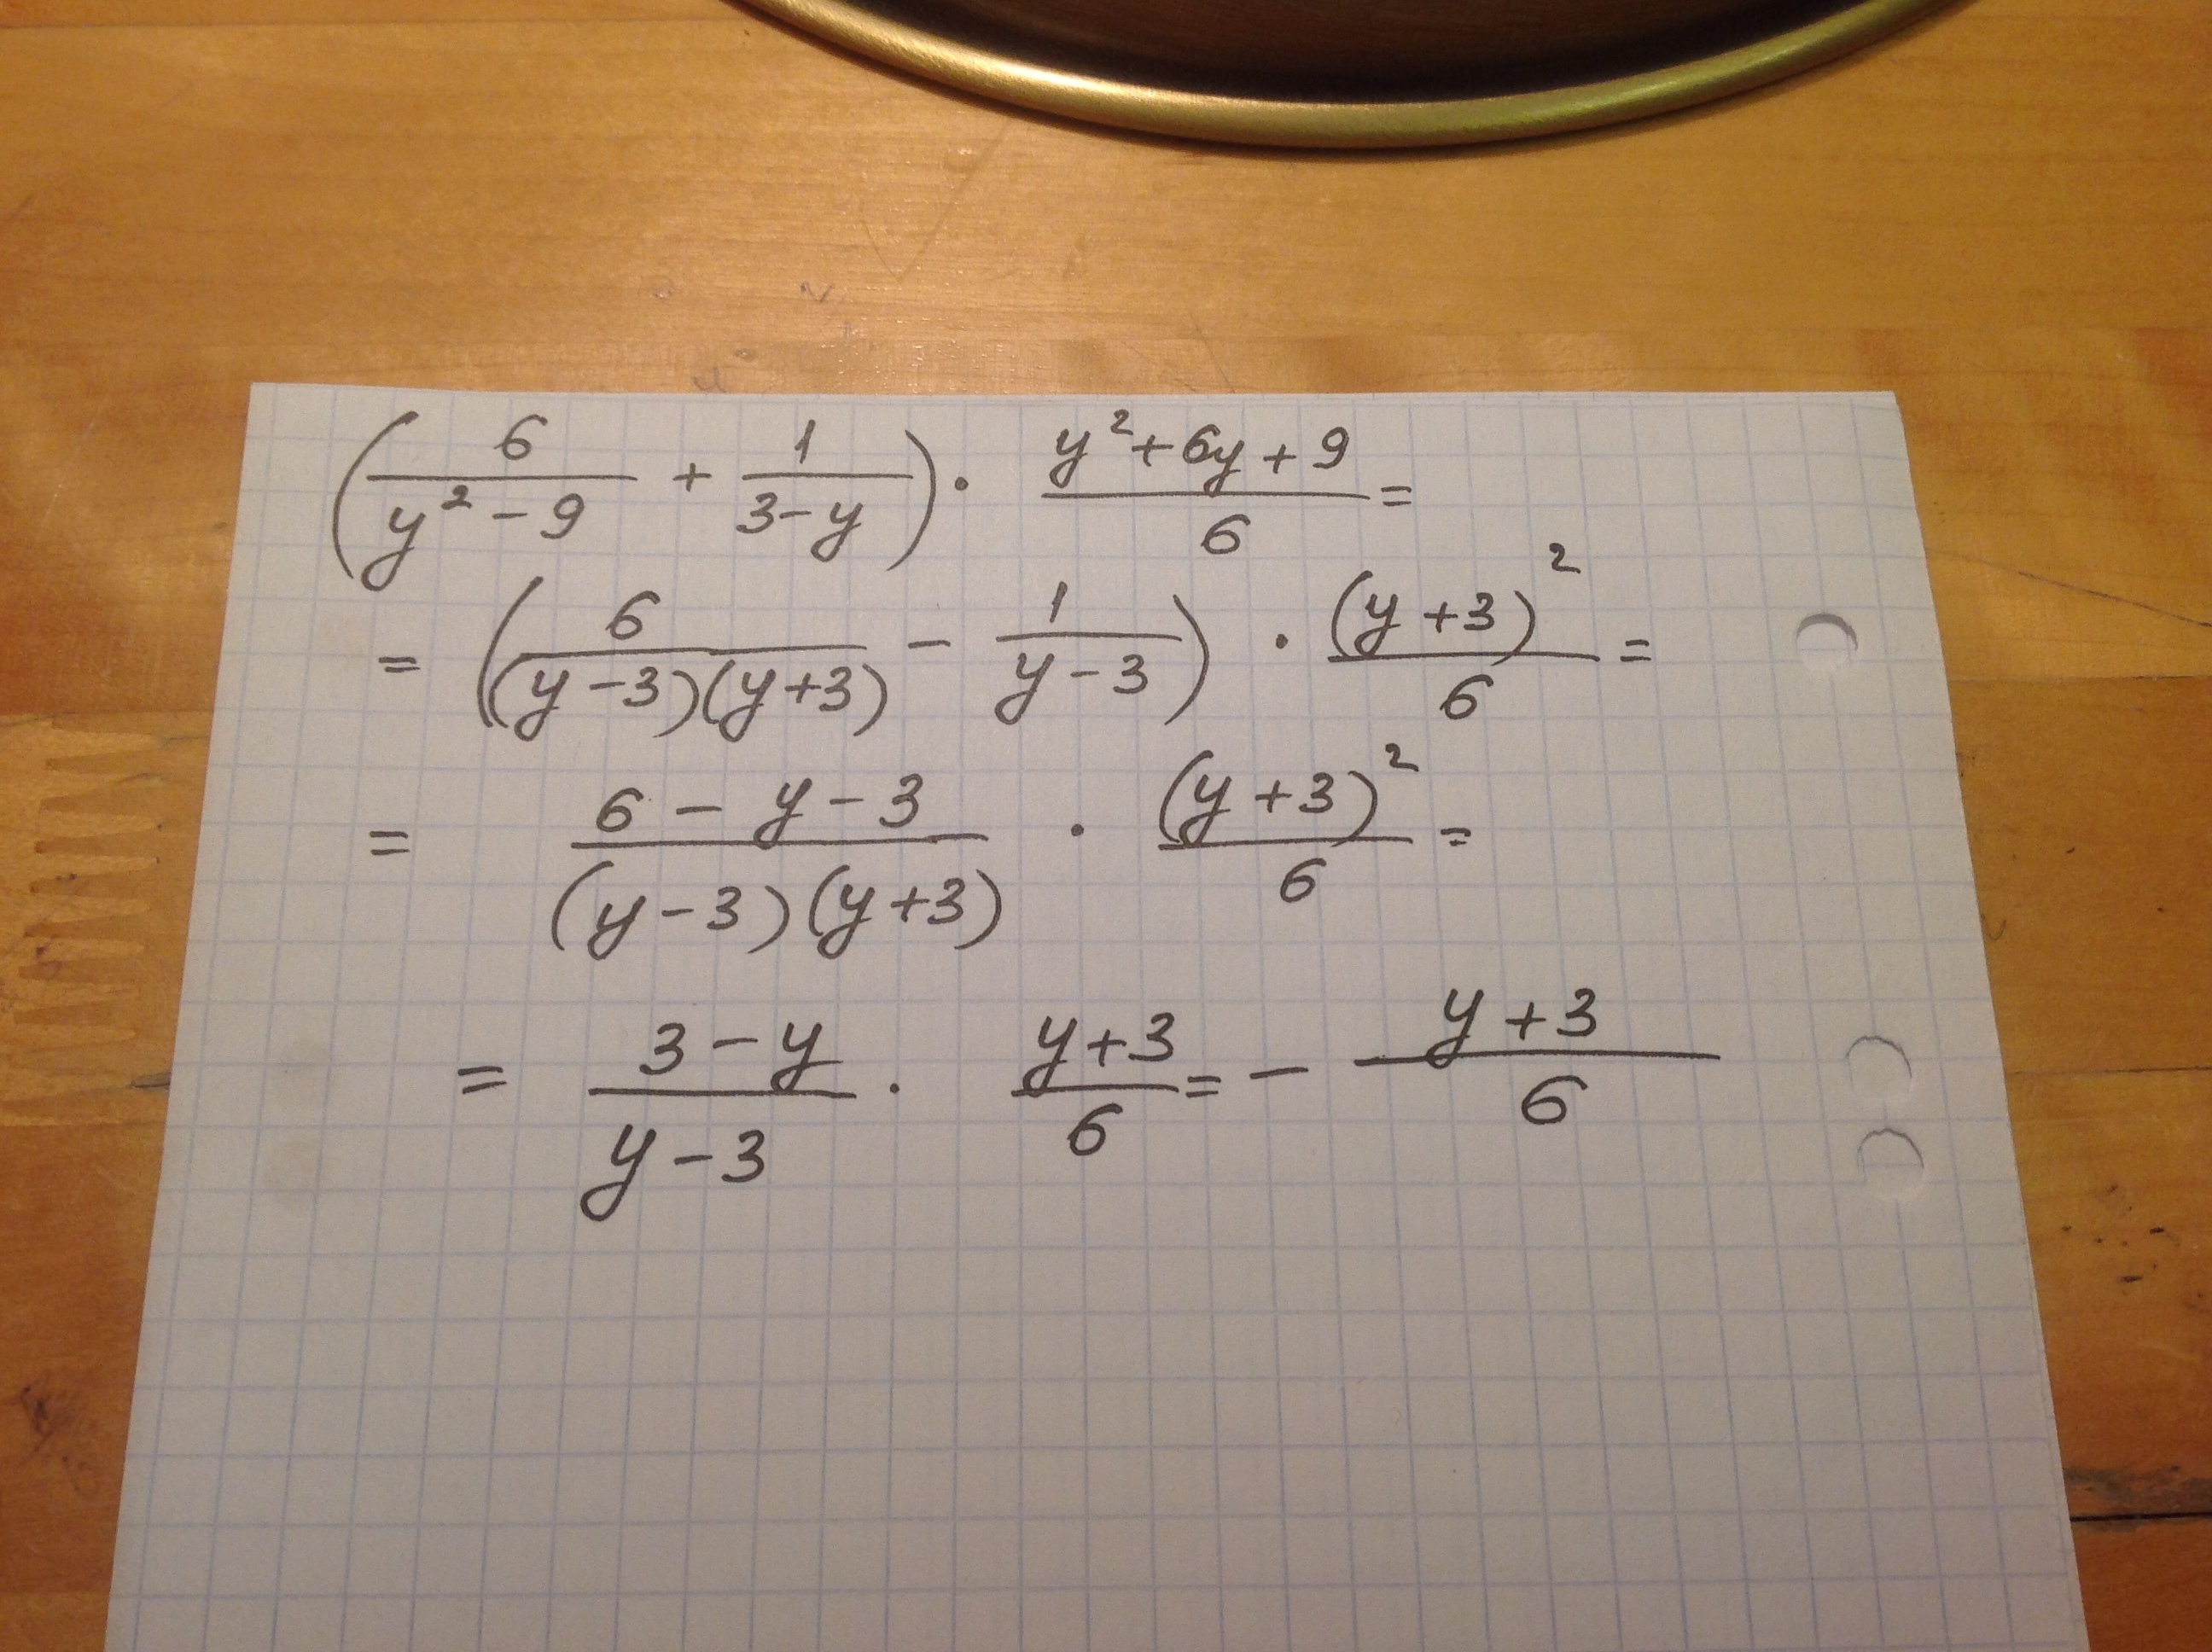 (6/(y²-9) + 1/(3-y)) · (y²+6y+9)/6 =
= (6/((y-3)(y+3)) - 1/(y-3)) · (y+3)²/6 =
= (6-y-3)/((y-3)(y+3)) · (y+3)²/6 =
= (3-y)/(y-3) · (y+3)/6 = - (y+3)/6